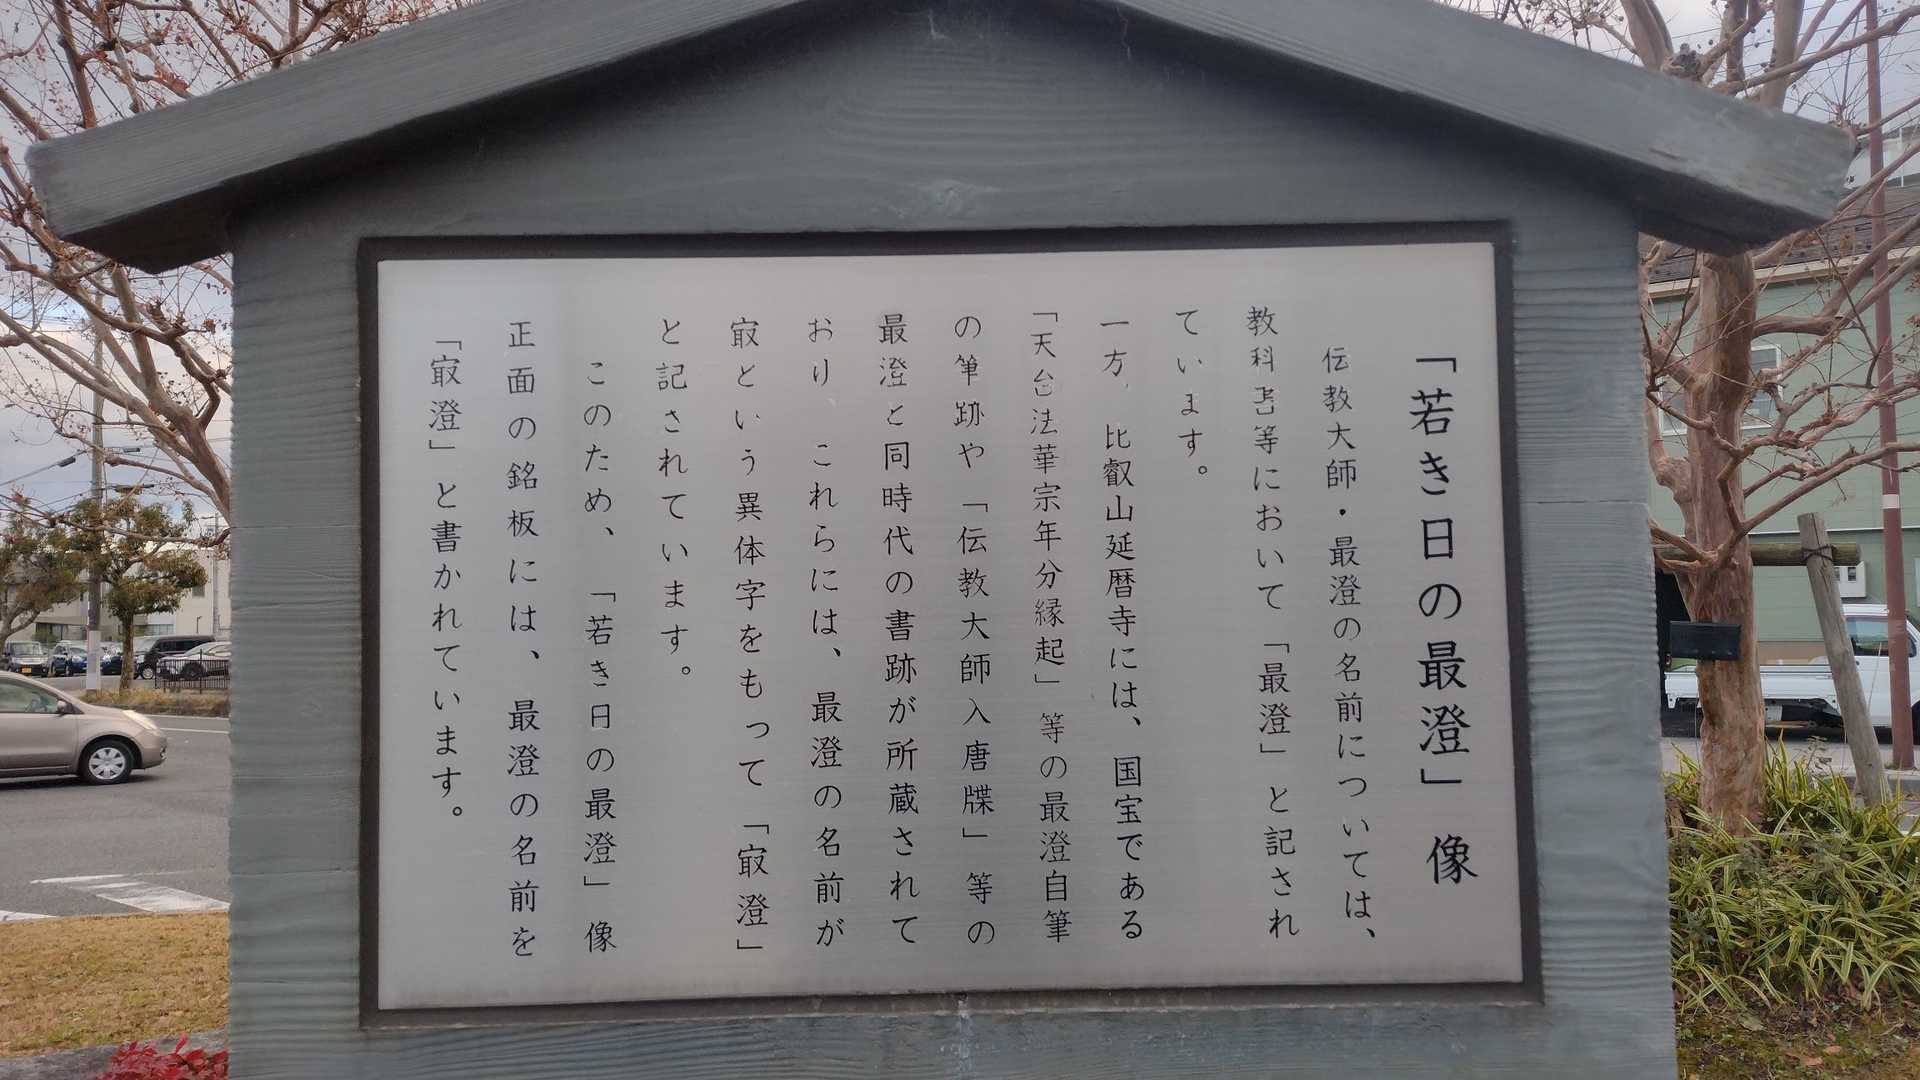 「若き日の最澄」像
伝教大師・最澄の名前については、
教科書等において「最澄」と記され
ています。
一方、比叡山延暦寺には、国宝である
「天台法華宗年分縁起」等の最澄自筆
の筆跡や「伝教大師入唐牒」等の
最澄と同時代の書跡が所蔵されて
おり、これらには、最澄の名前が
㝡という異体字をもって「㝡澄」
と記されています。
このため、「若き日の最澄」像
正面の銘板には、最澄の名前を
「㝡澄」と書かれています。